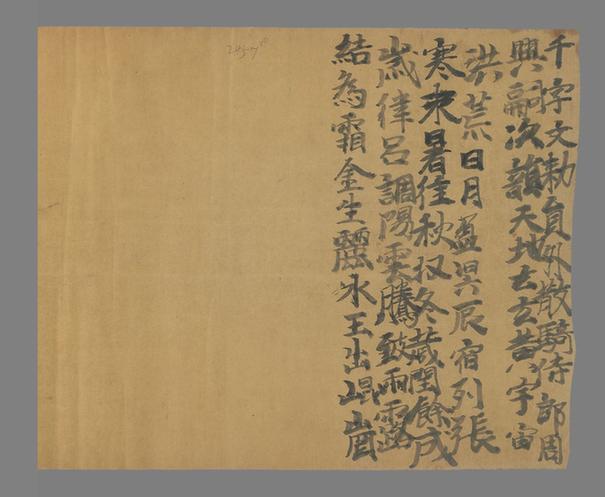 千字文勅員外散騎侍郎周
興嗣次韻天地玄黄宇宙
洪荒日月盈昃辰宿列張
寒来暑往秋収冬蔵閏餘成
歳律呂調陽雲騰致雨露
結為霜金生麗水玉出崐崗